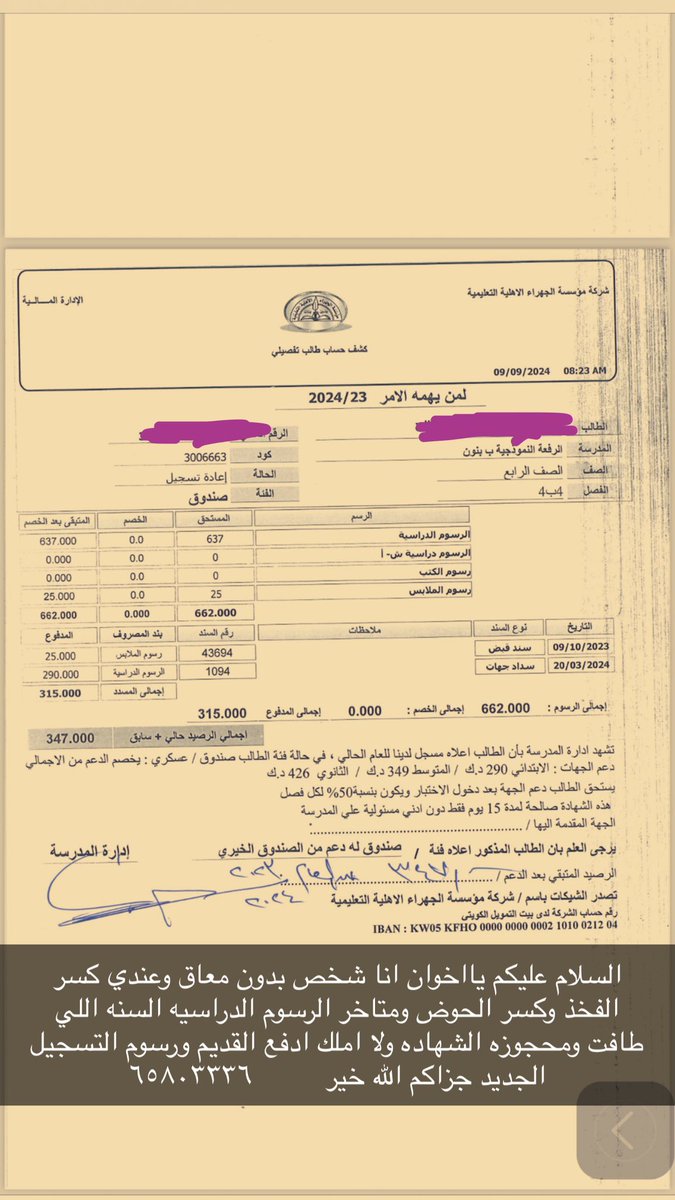 شركة مؤسسة الجهراء الاهلية التعليمية
الإدارة المـــالـــية
كشف حساب طالب تفصيلي
09/09/2024 08:23 AM
لمن يهمه الامر 2024/23
الطالب
الرقم
المدرسة الرفعة النموذجية ب بنون
كود 3006663
الصف الصف الرابع
الحالة إعادة تسجيل
الفصل 4ب4
الفئة صندوق
الرسم المستحق الخصم المتبقى بعد الخصم
الرسوم الدراسية 637 0.0 637.000
الرسوم دراسية ش- أ 0 0.0 0.000
رسوم الكتب 0 0.0 0.000
رسوم الملابس 25 0.0 25.000
662.000 0.000 662.000
التاريخ نوع السند ملاحظات رقم السند بند المصروف المدفوع
09/10/2023 سند قبض 43694 رسوم الملابس 25.000
20/03/2024 سداد جهات 1094 الرسوم الدراسية 290.000
إجمالي المسدد 315.000
إجمالى الرسوم : 662.000 إجمالي الخصم : 0.000 إجمالي المدفوع 315.000
اجمالي الرصيد حالي + سابق 347.000
تشهد ادارة المدرسة بأن الطالب اعلاه مسجل لدينا للعام الحالي ، في حالة فئة الطالب صندوق / عسكري : يخصم الدعم من الاجمالي
دعم الجهات : الابتدائي 290 د.ك / المتوسط 349 د.ك / الثانوي 426 د.ك
يستحق الطالب دعم الجهة بعد دخول الاختبار ويكون بنسبة50% لكل فصل
هذه الشهادة صالحة لمدة 15 يوم فقط دون ادني مسئولية علي المدرسة
الجهة المقدمة اليها /
يرجى العلم بان الطالب المذكور اعلاه فئة / صندوق له دعم من الصندوق الخيري
إدارة المدرسة
الرصيد المتبقي بعد الدعم / ٣٤٧/
٢٠٢٤
تصدر الشيكات باسم / شركة مؤسسة الجهراء الاهلية التعليمية
رقم حساب الشركة لدى بيت التمويل الكويتى
IBAN : KW05 KFHO 0000 0000 0002 1010 0212 04
السلام عليكم يااخوان انا شخص بدون معاق وعندي كسر
الفخذ وكسر الحوض ومتاخر الرسوم الدراسيه السنه اللي
طافت ومحجوزه الشهاده ولا املك ادفع القديم ورسوم التسجيل
الجديد جزاكم الله خير ٦٥٨٠٣٣٣٦